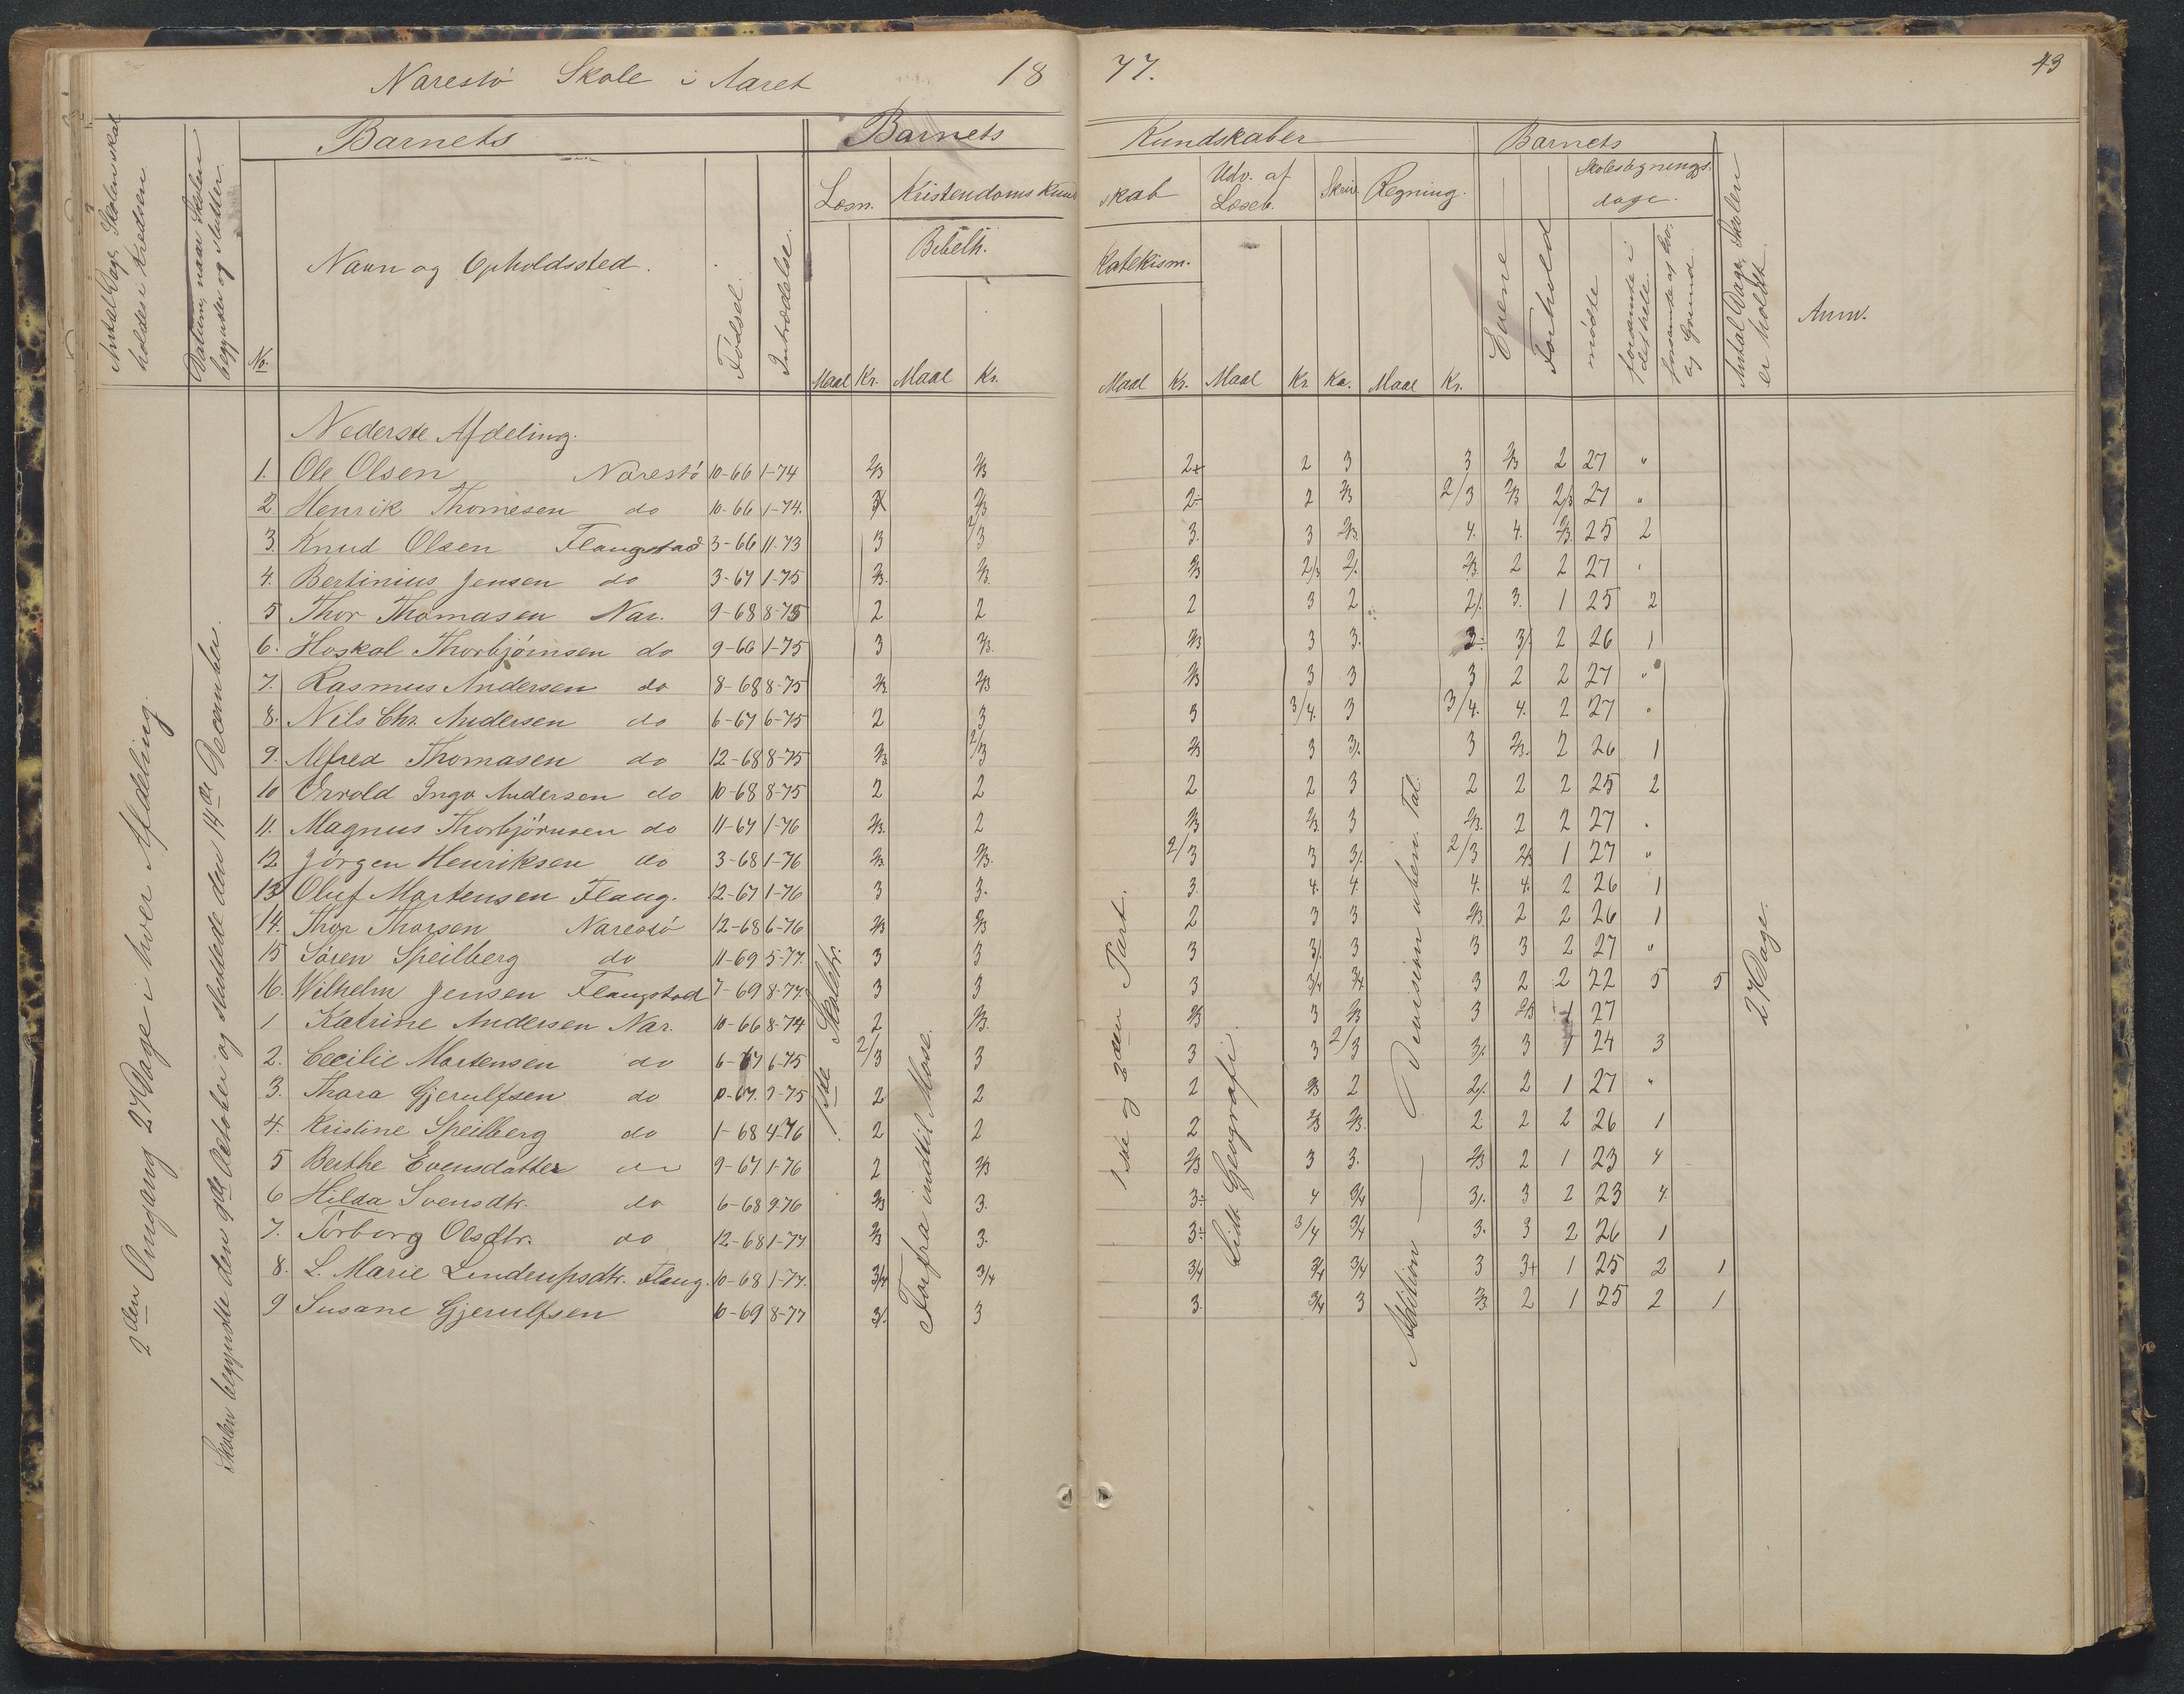 Narestø Skole i Aaret 18 77. 43
Antal Dage, Skolen skal holdes i Kredsen
Datum, naar Skolen begynder og slutter
Barnets
Barnets
Kundskaber
Barnets
No.
Navn og Opholdssted.
Fødsel.
Indtrædelse.
Læsn.
Kristendoms Kund
skab
Udv. af Læseb.
Skriv.
Regning.
Evene
Forhold
Skolesøgnings dage.
Bibelh.
Katekism.
mødte
forsømte i det hele
forsømte af lov. og Grund
Antal Dage, Skolen er holdt
Anm.
Maal Kr. Maal Kr. Maal Kr. Maal Kr. Ka. Maal Kr.
2den Omgang 27 Dage i hver Afdeling.
Skolen begyndte den 9de October og sluttede den 14de December.
Nederste Afdeling.
1. Ole Olsen Narestø 10-66 1-74 2/3 2/3 2+ 2 3 3 2/3 2 27 "
2. Henrik Thomesen do 10-66 1-74. 2/3 2÷ 2 2/3 2/3 2/3 2/3 27 "
3. Knud Olsen Flangstad 3-66 11-73 3 2/3 3. 3 2/3 4. 4. 2/3 25 2
4. Bertinius Jensen do 3-67 1-75 2/3. 2/3. 2/3 2/3 2/. 2/3. 2 2 27 "
5 Thor Thomasen Nar. 9-68 8-75 2 2 2 3 2 2/. 3. 1 25 2
6. Hoskal Thorbjørnsen do 9-66 1-75 3 2/3. 2/3 3 3. 3÷ 3/. 2 26 1
7. Rasmus Andersen do 8-68 8-75 2/3 2/3 2/3 3 3 3 2 2 27 "
8. Nils Chr. Andersen do 6-67 6-75 2 3 3 3/4. 3 3/4. 4. 2 27 "
9. Alfred Thomasen do 12-68 8-75 2/3 2/3 2/3 3 3/. 3 2/3. 2 26 1
10 Ervold Inga Andersen do 10-68 8-75 2 2 2 2 3 2 2 2 25 2
11. Magnus Thorbjørnsen do 11-67 1-76 2/3. 2 2/3 2/3 3 2/3. 2 2 27 .
12 Jørgen Henriksen do 3-68 1-76 2/3 2/3. 2/3 3 3/. 2/3 2/3 1 27 "
13 Oluf Mortensen Flang. 12-67 1-76 3 3. 3. 4. 4. 4. 4. 2 26 1
14. Thor Thorsen Narestø 12-68 6-76 2/3 2/3 2 3 3 2/3 2 2 26 1
15 Søren Speilberg do 11-69 5-77. 3 3 3 3/. 3 3 3 2 27 "
16. Wilhelm Jensen Flangstad 7-69 8-77. 3 3 3 3/4 3/4 3 2 2 22 5 5
1 Katrine Andersen Nar. 10-66 8-74 2 2/3. 2/3 3 2/3 3 2/3 1 27
2. Cecilie Mortensen do 6-67 6-75 2/3 3 3 3 2/3 3/. 3 1 24 3
3. Thora Gjerulfsen do 2 2 2 2/3 2 2/. 2 1 27 "
4. Kristine Speilberg do 1-68 4-76 2 2 2 2/3 2/3. 2 2 2 26 1
5 Berthe Evensdatter do 9-67 1-76 2 2/3 2/3 3 3. 2/3 2 1 23 4
6 Hilda Svensdtr. do 6-68 9-76 2/3 3. 3÷ 4 3/4 3/. 3 2 23 4.
7. Torborg Olsdtr. do 12-68 1-77. 2/3 3. 3÷ 3/4 3/4 3. 3 2 26 1
8. L. Marie Lendrupsdtr. Flang. 10-68 1-77. 3/4 3/4 3/4 3/4 3/4 3 3+ 1 25 2 1
9 Susane Gjerulfsen 6-69 8-77 3/. 3 3. 3/4 3 2/3 2 1 25 2 1
1ste Skoletr.
Forfra indtil Mose.
1ste og 2den Part.
Lidt Geografi.
Addition — Division uben. Tal.
27 Dage.